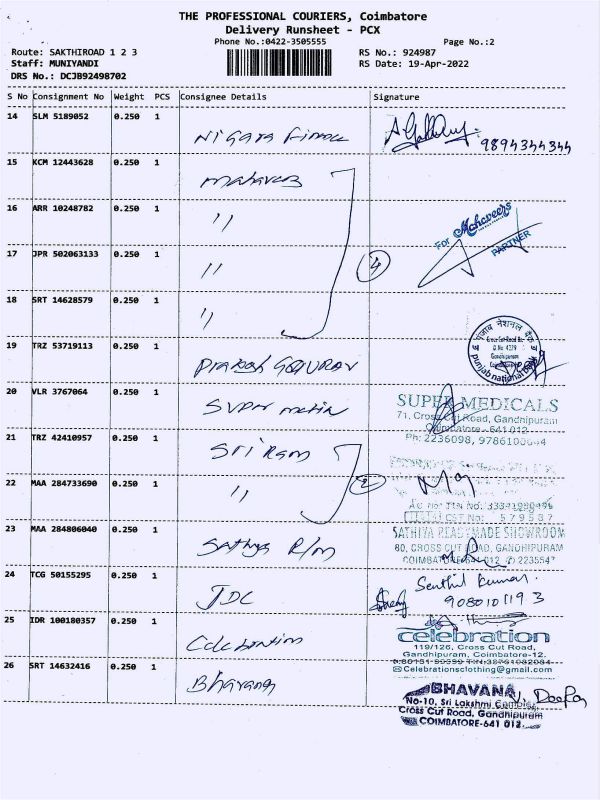 THE PROFESSIONAL COURIERS, Coimbatore
Delivery Runsheet - PCX
Phone No.:0422-3505555
Page No.:2
Route: SAKTHIROAD 1 2 3
RS No.: 924987
Staff: MUNIYANDI
RS Date: 19-Apr-2022
DRS No.: DCJB92498702
S No Consignment No Weight PCS Consignee Details Signature
14 SLM 5189052 0.250 1
9894344344
15 KCM 12443628 0.250 1 mahaveers
16 ARR 10248782 0.250 1 "
For Mahaveers
PARTNER
17 JPR 502063133 0.250 1 "
4
18 SRT 14628579 0.250 1 "
19 TRZ 53719113 0.250 1
पंजाब नेशनल बैंक
Gandhipuram
punjab national bank
20 VLR 3767064 0.250 1
SUPER MEDICALS
71, Cross Cut Road, Gandhipuram
Coimbatore-641 012
Ph: 2236098,
21 TRZ 42410957 0.250 1 Sri Ram
22 MAA 284733690 0.250 1 "
2
23 MAA 284806040 0.250 1 Sathya R/m
SATHIYA READYMADE SHOWROOM
80, CROSS CUT ROAD, GANDHIPURAM
COIMBATORE-641 012
24 TCG 50155295 0.250 1 JDC
Senthil Kumar.
9080101193
25 IDR 100180357 0.250 1 Celebration
celebration
119/126, Cross Cut Road,
Gandhipuram, Coimbatore-12.
Celebrationsclothing@gmail.com
26 SRT 14632416 0.250 1 Bhavana
BHAVANA
No-10, Sri Lakshmi Complex
Cross Cut Road, Gandhipuram
COIMBATORE-641 012.